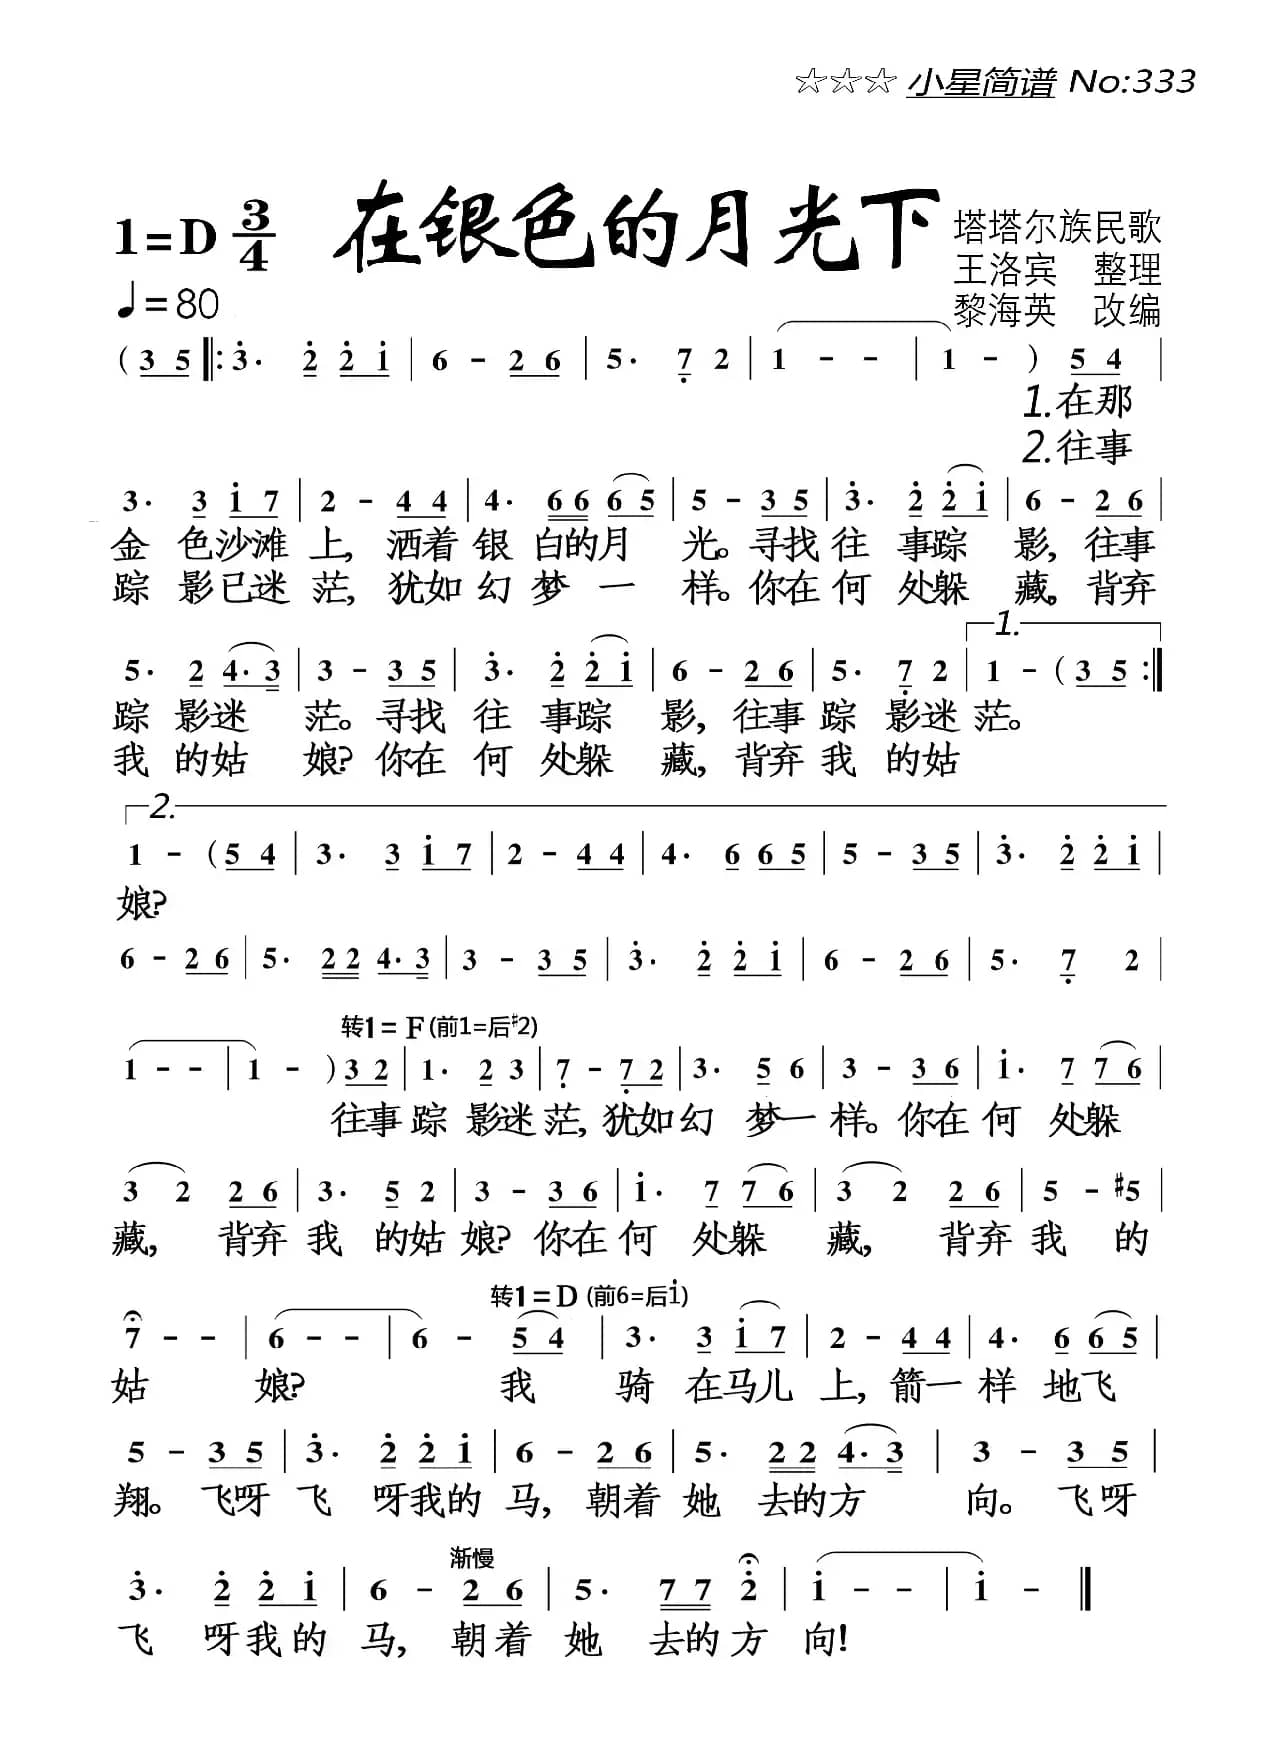 ☆☆☆ 小星简谱 No:333
1=D 3/4 在银色的月光下
塔塔尔族民歌
王洛宾 整理
黎海英 改编
♩=80
( 3 5 ‖: 3̇· 2̇ 2̇ 1̇ | 6 - 2 6 | 5· 7̣ 2 | 1 - - | 1 - ) 5 4 |
1.在那
2.往事
3· 3 1̇ 7 | 2 - 4 4 | 4· 6 6 6 5 | 5 - 3 5 | 3̇· 2̇ 2̇ 1̇ | 6 - 2 6 |
金 色沙滩 上, 洒着 银 白的月 光。寻找 往 事踪 影, 往事
踪 影已迷 茫, 犹如 幻 梦 一 样。你在 何 处躲 藏, 背弃
1.
5· 2 4· 3 | 3 - 3 5 | 3̇· 2̇ 2̇ 1̇ | 6 - 2 6 | 5· 7̣ 2 | 1 - ( 3 5 :‖
踪 影迷 茫。寻找 往 事踪 影, 往事 踪 影迷 茫。
我 的姑 娘? 你在 何 处躲 藏, 背弃 我 的姑
2.
1 - ( 5 4 | 3· 3 1̇ 7 | 2 - 4 4 | 4· 6 6 5 | 5 - 3 5 | 3̇· 2̇ 2̇ 1̇ |
娘?
6 - 2 6 | 5· 2 2 4· 3 | 3 - 3 5 | 3̇· 2̇ 2̇ 1̇ | 6 - 2 6 | 5· 7̣ 2 |
转1= F (前1=后♯2)
1 - - | 1 - ) 3 2 | 1· 2 3 | 7̣ - 7̣ 2 | 3· 5 6 | 3 - 3 6 | 1̇· 7 7 6 |
往事 踪 影迷 茫, 犹如 幻 梦一 样。你在 何 处躲
3 2 2 6 | 3· 5 2 | 3 - 3 6 | 1̇· 7 7 6 | 3 2 2 6 | 5 - ♯5 |
藏, 背弃 我 的姑 娘? 你在 何 处躲 藏, 背弃 我 的
转1= D (前6=后1̇)
7 - - | 6 - - | 6 - 5 4 | 3· 3 1̇ 7 | 2 - 4 4 | 4· 6 6 5 |
姑 娘? 我 骑 在马儿 上, 箭一 样 地飞
5 - 3 5 | 3̇· 2̇ 2̇ 1̇ | 6 - 2 6 | 5· 2 2 4· 3 | 3 - 3 5 |
翔。 飞呀 飞 呀我的 马, 朝着 她 去的方 向。 飞呀
渐慢
3̇· 2̇ 2̇ 1̇ | 6 - 2 6 | 5· 7 7 2̇ | 1̇ - - | 1̇ - ‖
飞 呀我的 马, 朝着 她 去的方 向!